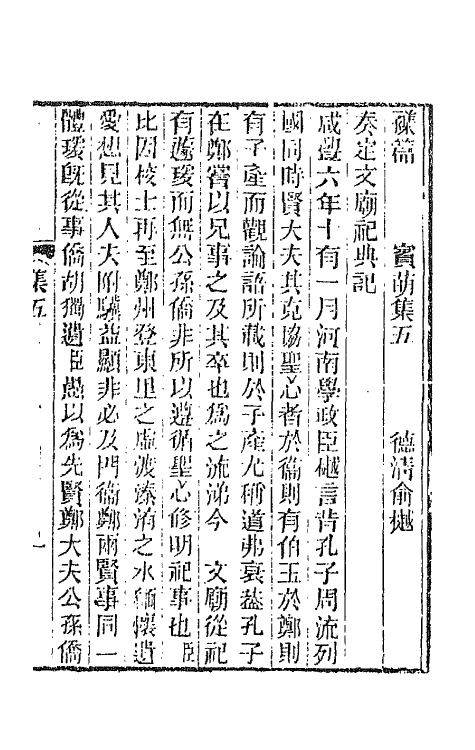 襍篇　賓萌集五　德清俞樾
奏定文廟祀典記
咸豐六年十有一月河南學政臣樾言昔孔子周流列
國同時賢大夫其克協聖心者於衞則有伯玉於鄭則
有子產而觀論語所載則於子產尤稱道弗衰蓋孔子
在鄭嘗以兄事之及其卒也爲之流涕今　文廟從祀
有蘧瑗而無公孫僑非所以遵循聖心修明祀事也臣
比因校士再至鄭州登東里之虛渡溱洧之水緬懷遺
愛想見其人夫附驥益顯非必及門衞鄭兩賢事同一
體瑗旣從事僑胡獨遺臣愚以爲先賢鄭大夫公孫僑
集五
一